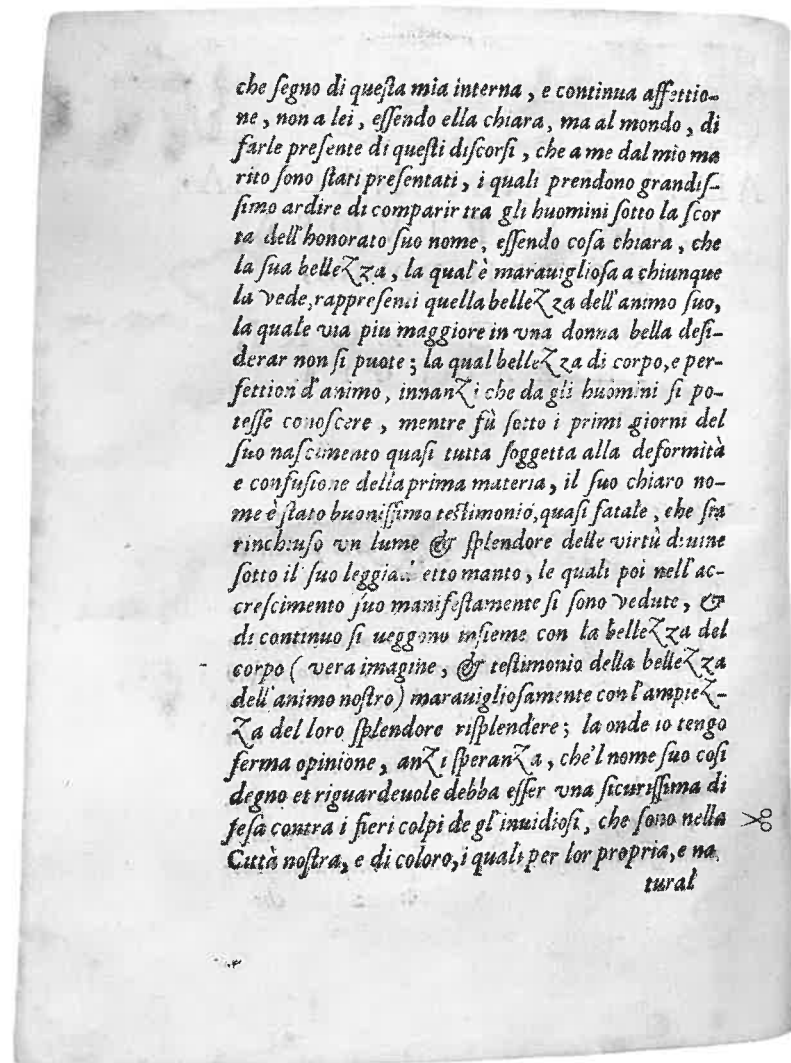 che ſegno di queſta mia interna, e continua affettio-
ne, non a lei, eſſendo ella chiara, ma al mondo, di
farle preſente di queſti diſcorſi, che a me dal mio ma
rito ſono ſtati preſentati, i quali prendono grandiſ-
ſimo ardire di comparir tra gli huomini ſotto la ſcor
ta dell'honorato ſuo nome, eſſendo coſa chiara, che
la ſua bellezza, la qual'è marauiglioſa a chiunque
la vede, rappreſenti quella bellezza dell'animo ſuo,
la quale via piu maggiore in vna donna bella deſi-
derar non ſi puote; la qual bellezza di corpo, e per-
fettion d'animo, innanzi che da gli huomini ſi po-
teſſe conoſcere, mentre fù ſotto i primi giorni del
ſuo naſcimento quaſi tutta ſoggetta alla deformità
e confuſione della prima materia, il ſuo chiaro no-
me è ſtato buoniſſimo teſtimonio, quaſi fatale, che ſia
rinchiuſo vn lume & ſplendore delle virtù diuine
ſotto il ſuo leggiad etto manto, le quali poi nell'ac-
creſcimento ſuo manifeſtamente ſi ſono vedute, &
di continuo ſi ueggono inſieme con la bellezza del
corpo ( vera imagine, & teſtimonio della bellezza
dell'animo noſtro) marauiglioſamente con l'ampiez-
za del loro ſplendore riſplendere; la onde io tengo
ferma opinione, anzi ſperanza, che'l nome ſuo coſi
degno et riguardeuole debba eſſer vna ſicuriſſima di
feſa contra i fieri colpi de gl'inuidioſi, che ſono nella
Città noſtra, e di coloro, i quali per lor propria, e na
tural